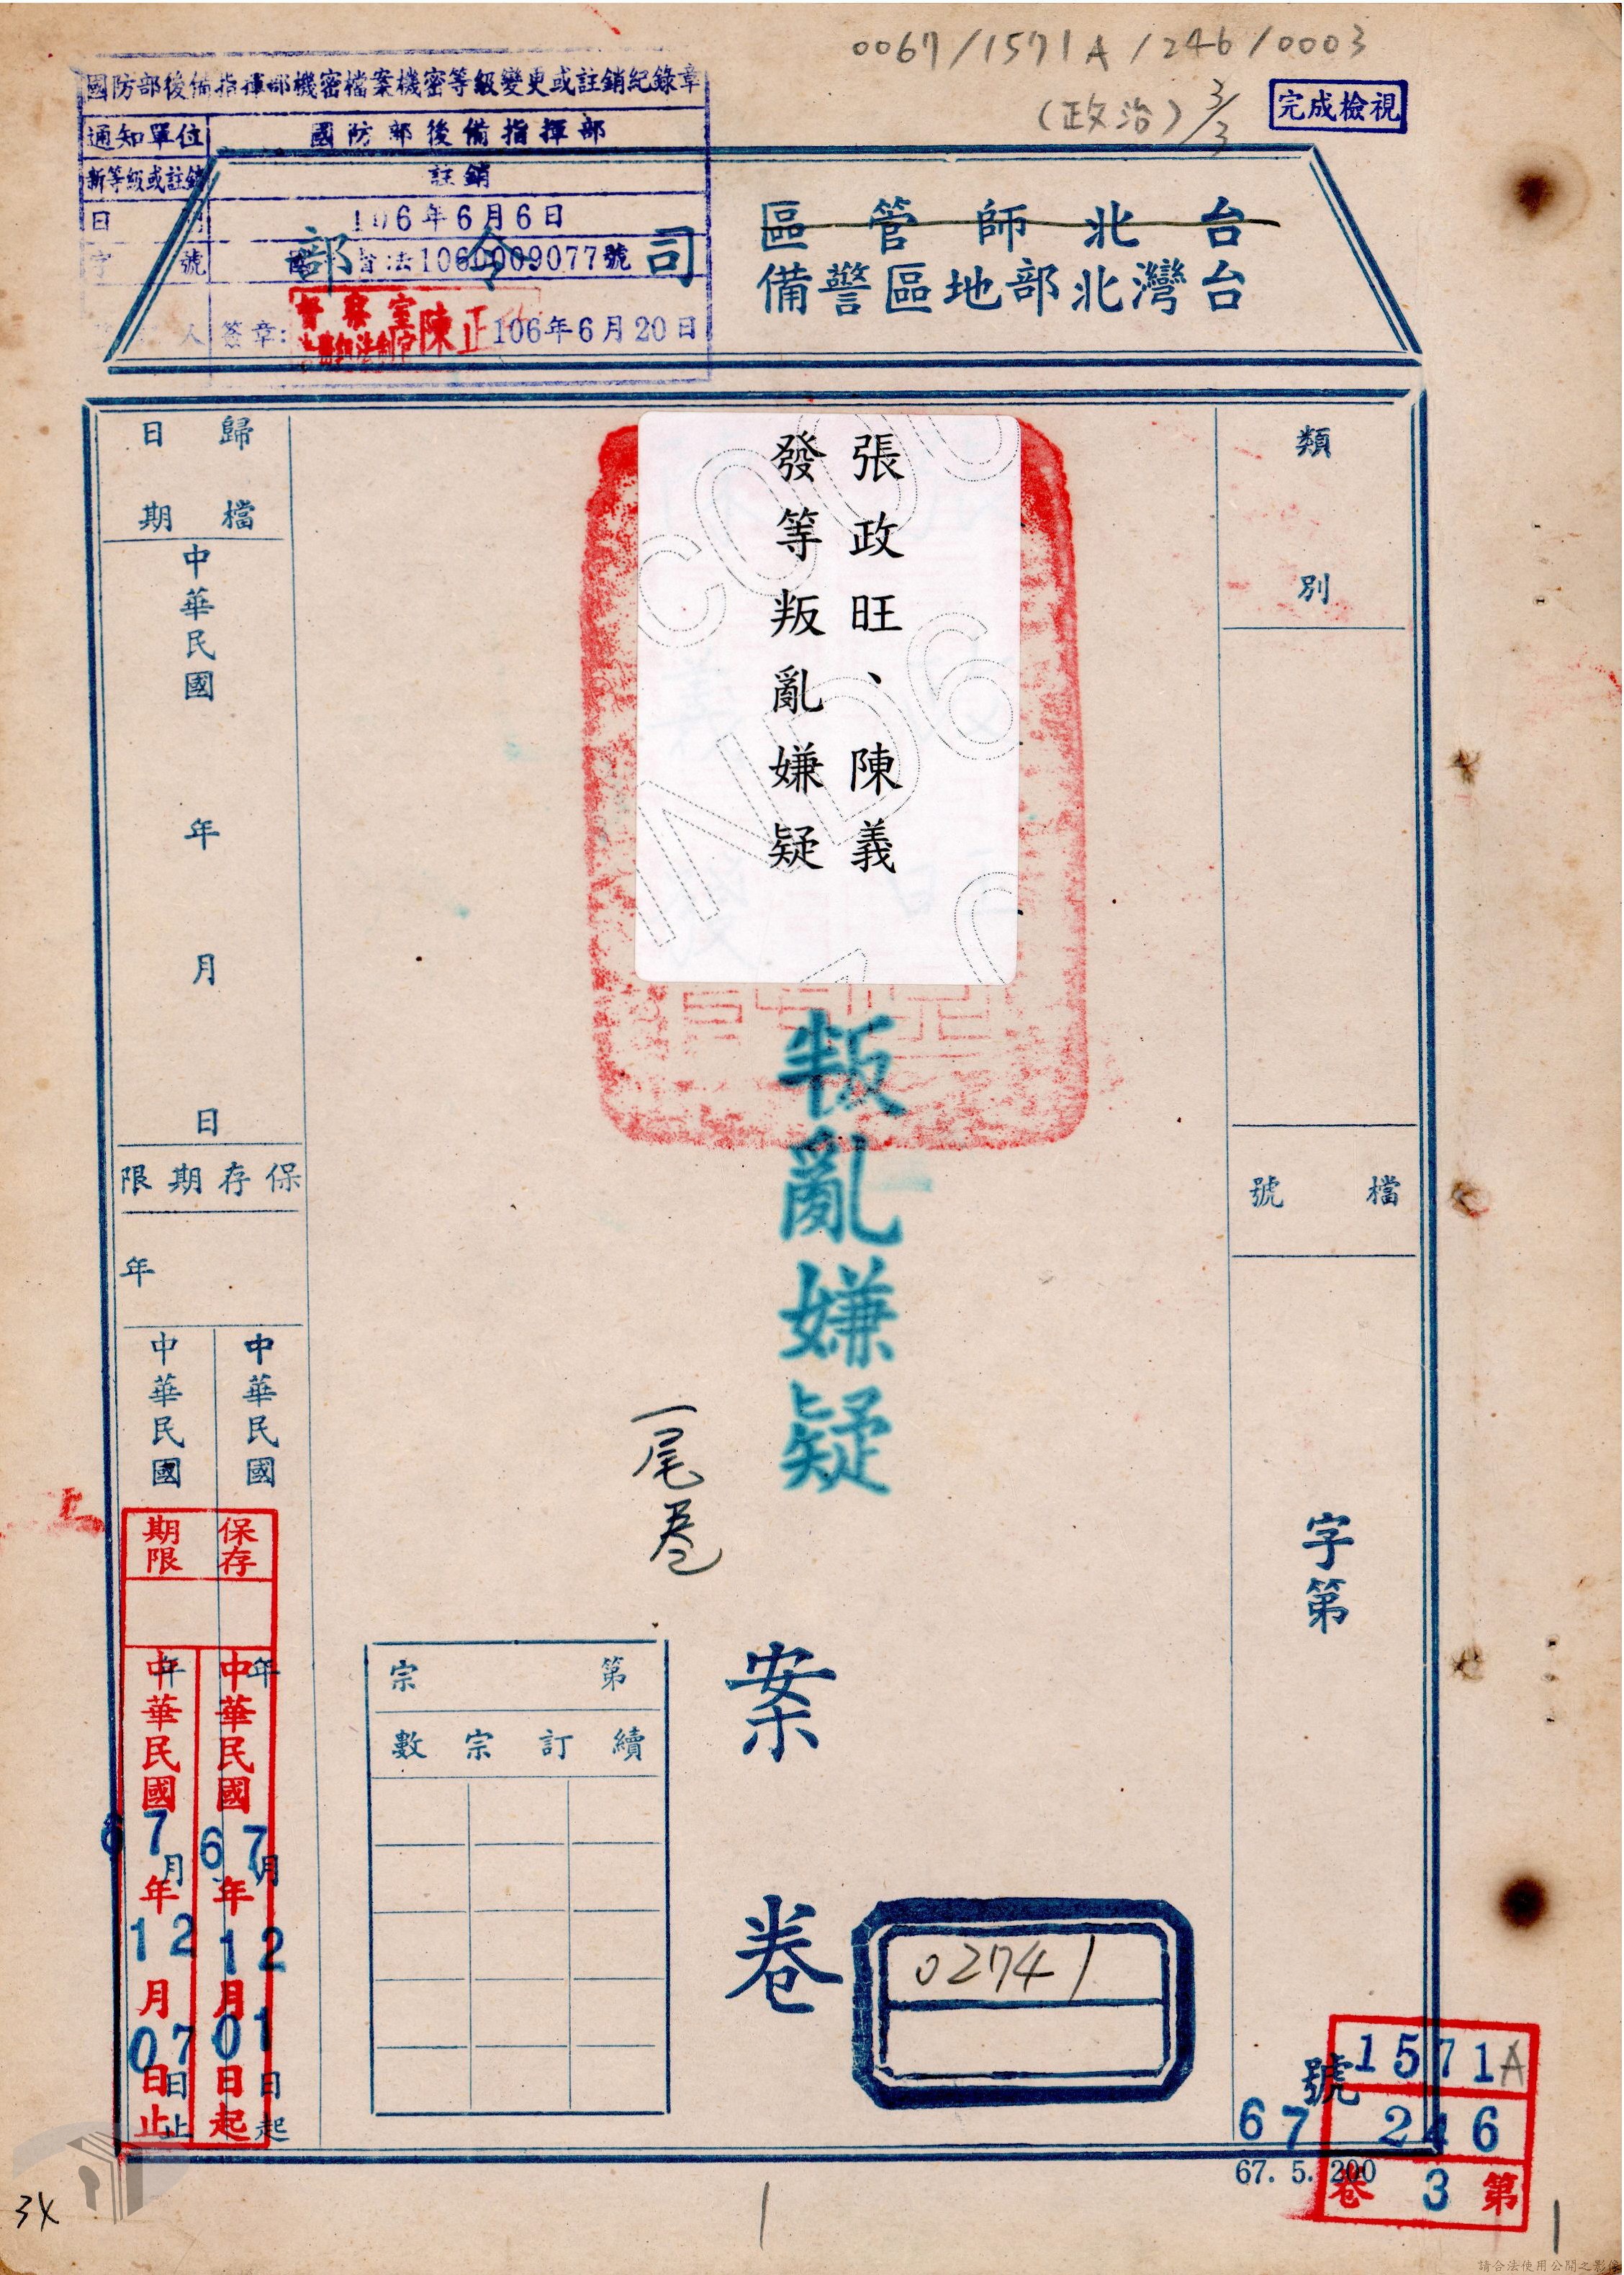 0067/1571A/246/0003
(政治) 3/3
完成檢視
國防部後備指揮部機密檔案機密等級變更或註銷紀錄章
通知單位 國防部後備指揮部
新等級或註銷 註銷
日 106年6月6日
字 號 法1060009077號
人 簽章: 陳正 106年6月20日
區管師北台
備警區地部北灣台
部令司
類別
檔號
字第
號
張政旺、陳義
發等叛亂嫌疑
叛亂嫌疑
一尾卷
案卷
02741
宗 第
數宗訂續
歸檔
日期
中華民國 年 月 日
限期存保
年
中華民國 年 月 日起
中華民國 年 月 日止
保存
期限
中華民國67年12月01日起
中華民國67年12月07日止
1571A
67 246
卷 3 第
67. 5. 200
3X
請合法使用公開之影像